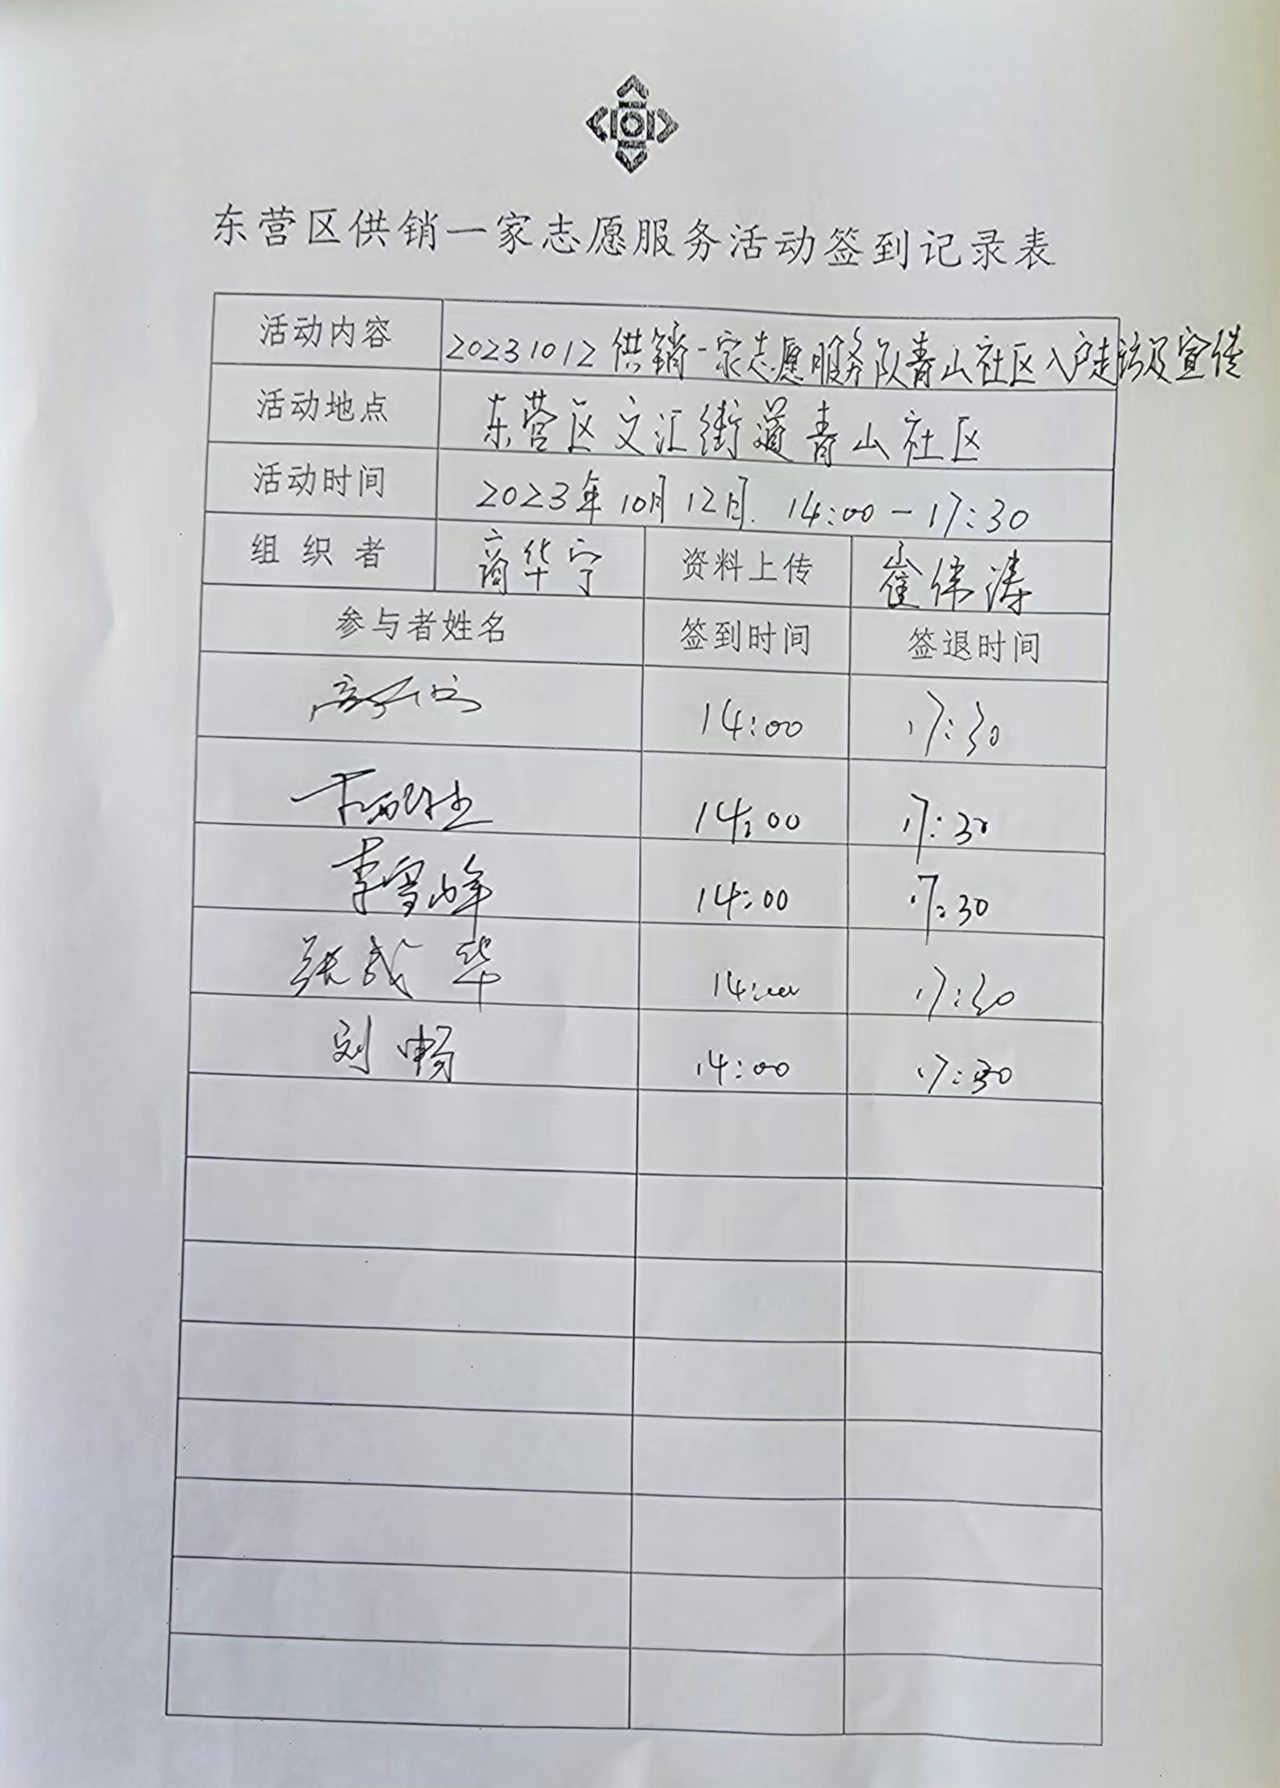 东营区供销一家志愿服务活动签到记录表
活动内容 20231012供销一家志愿服务队青山社区入户走访及宣传
活动地点 东营区文汇街道青山社区
活动时间 2023年10月12日 14:00-17:30
组织者 商华宁 资料上传 崔伟涛
参与者姓名 签到时间 签退时间
14:00 17:30
14:00 17:30
李雪峰 14:00 17:30
张成华 14:00 17:30
刘畅 14:00 17:30